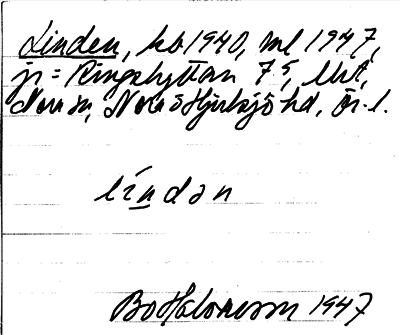 Linden, kb 1940, ml 1947,
jr = Ringshyttan 7⁵, litt,
Nora sn, Nora o Hjulsjö hd, Ör. l.
líndan
Bo Halvarson 1947